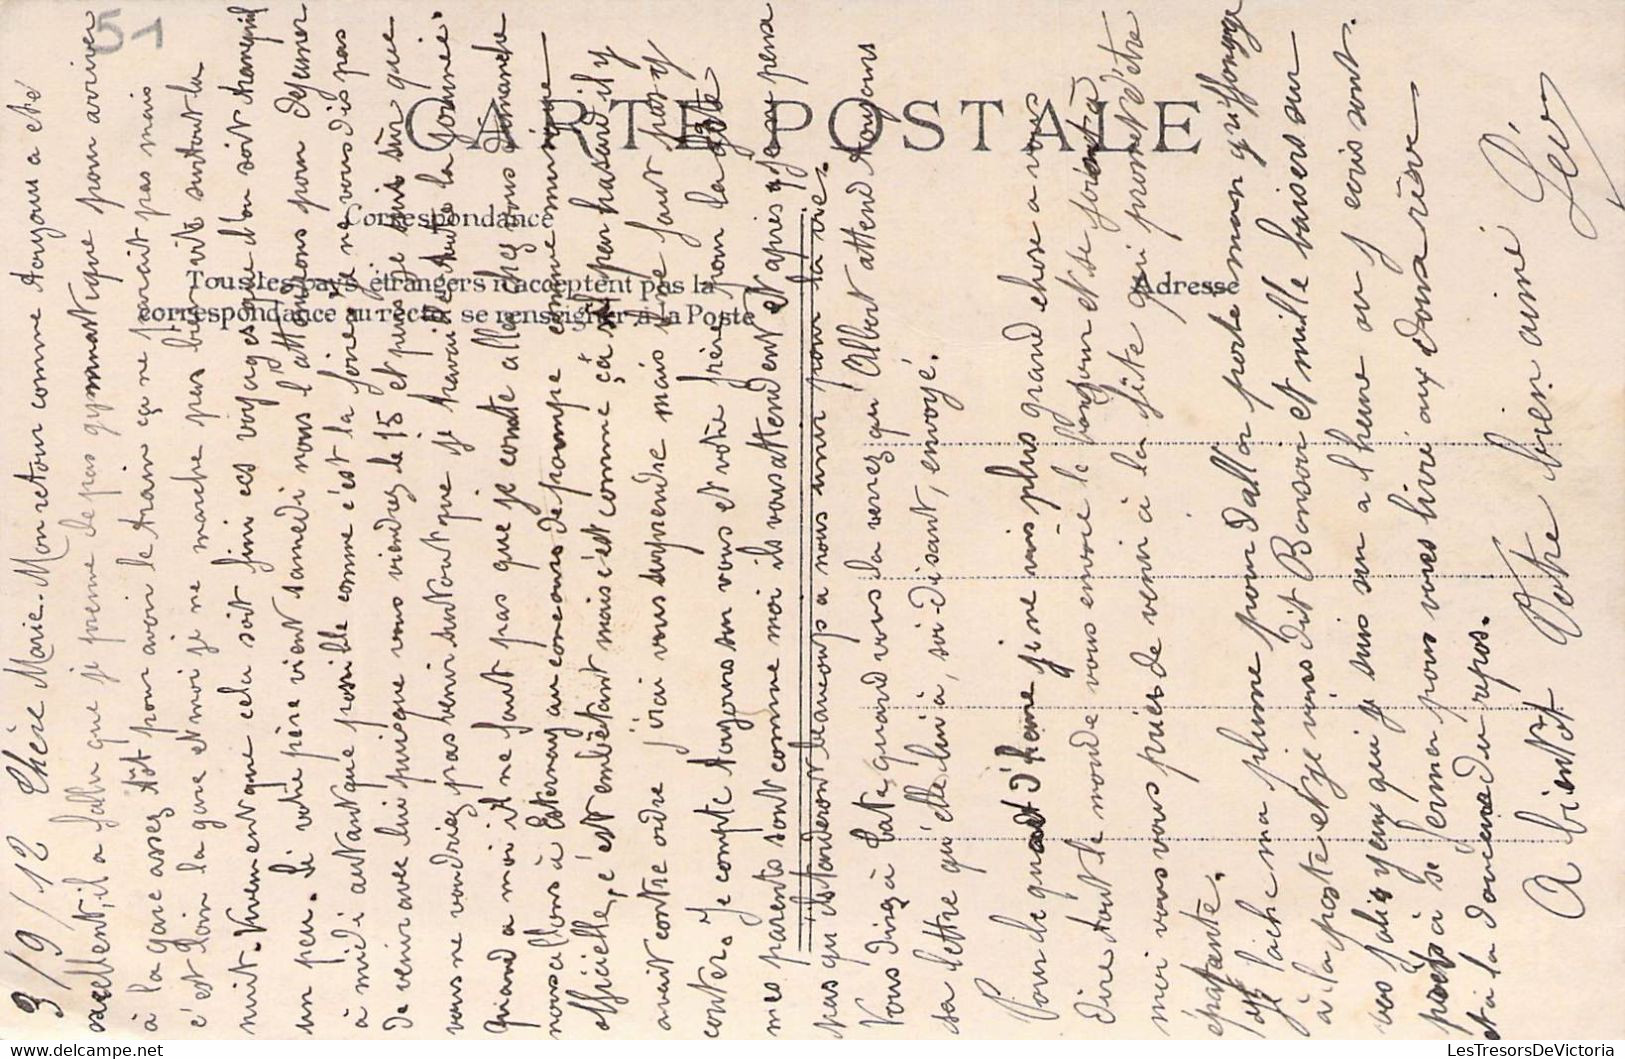 51
CARTE POSTALE
Correspondance
Tous les pays étrangers n'acceptent pas la
correspondance au recto, se renseigner à la Poste
Adresse
3/9/12 Chère Marie. Mon retour comme toujours a été
excellent, il a fallu que je prenne le pas gymnastique pour arriver
à la gare assez tôt pour avoir le train ça ne parait pas mais
c'est loin la gare et moi je ne marche pas bien vite surtout la
nuit. Vivement que cela soit fini ces voyages que l'on soit tranquil
un peu. Si votre père vient samedi nous l'attendons pour dejeuner
à midi autant que possible comme c'est la foire je ne vous dis pas
de venir avec lui puisque vous viendrez le 15 et puis je suis sûr que
vous ne voudriez pas venir surtout que je travaille toute la journée.
Quand a moi il ne faut pas que je compte aller chez vous dimanche
nous allons à Esternay au concours de pompe comme musique
officielle, c'est embêtant mais c'est comme ça si par hasard il y
avait contre ordre j'irai vous surprendre mais il ne faut pas y
compter. Je compte toujours sur vous et votre frère pour la fête
mes parents sont comme moi ils vous attendent et après je ne pense
pas qu'ils tarderont beaucoup a nous unir pour la vie.
Vous direz à Kate quand vous la verrez qu'Albert attend toujours
sa lettre qu'elle lui a, soi-disant, envoyé.
Pour le quart d'heure je ne vois plus grand chose a vous
dire tout le monde vous envoie le bonjour et se joint à
moi vous vous puiesde venir à la fête qui promet d'être
épatante.
Je lache ma plume pour d'aller porte mon griffonage
à la poste et je vous dit Bonsoir et mille baisers sur
vos jolis yeux qui je suis sur a l'heure ou j ecris sont
prêts à se fermer pour vous livré aux doux rêve
et à la douceur du repos.
A bientôt Votre bien aimé Léon
LesTresorsDeVictoria